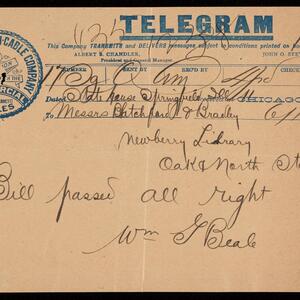 TELEGRAM
This Company TRANSMITS and DELIVERS messages subject to conditions printed on
ALBERT B. CHANDLER,
President and General Manager.
JOHN O. STE
SENT BY
REC'D BY
Dated State house Springfield Ill 11
CHICAGO
To Messrs Batchford & Bradley
Newberry Library
Oak & North St
Bill passed all right
Wm J Beale